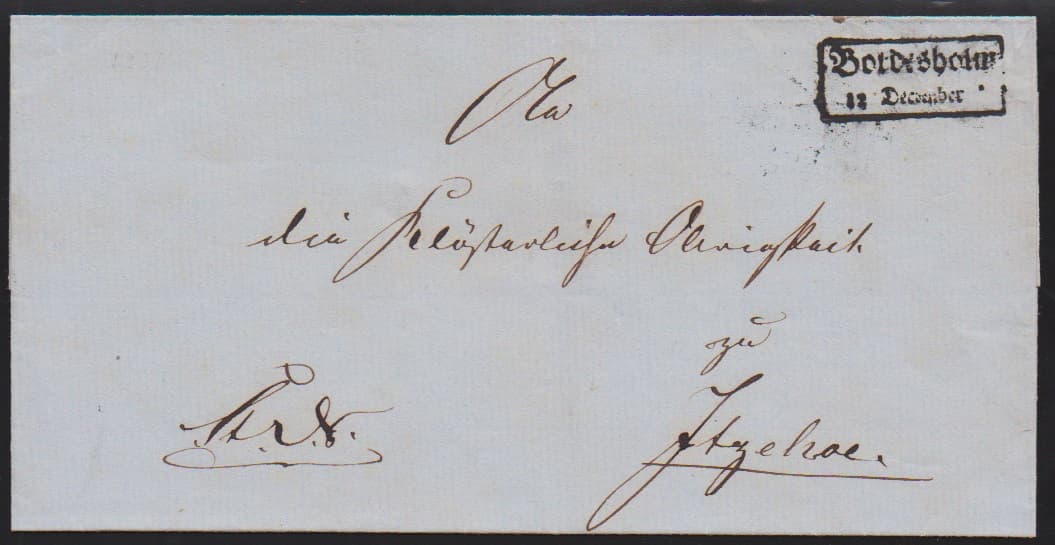 Bordesholm
12 December
An
die Klösterliche Obrigkeit
zu
Itzehoe.